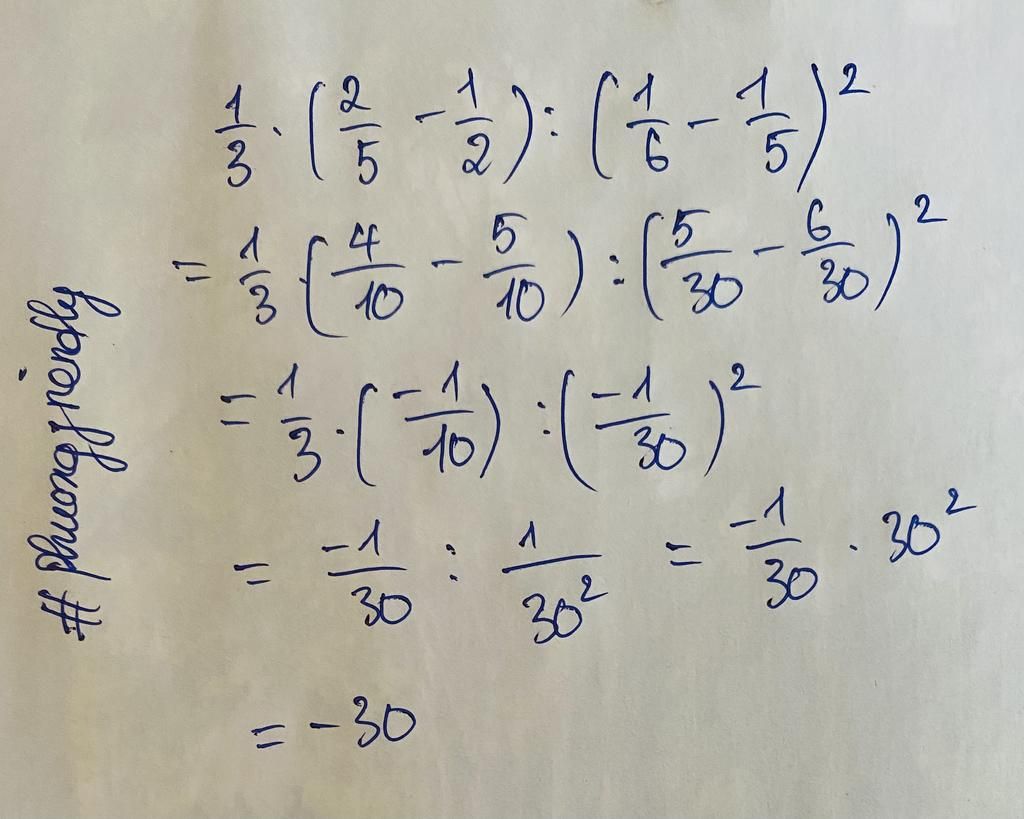 1/3 · (2/5 - 1/2) : (1/6 - 1/5)²
= 1/3 · (4/10 - 5/10) : (5/30 - 6/30)²
= 1/3 · (-1/10) : (-1/30)²
= -1/30 : 1/30² = -1/30 · 30²
= -30